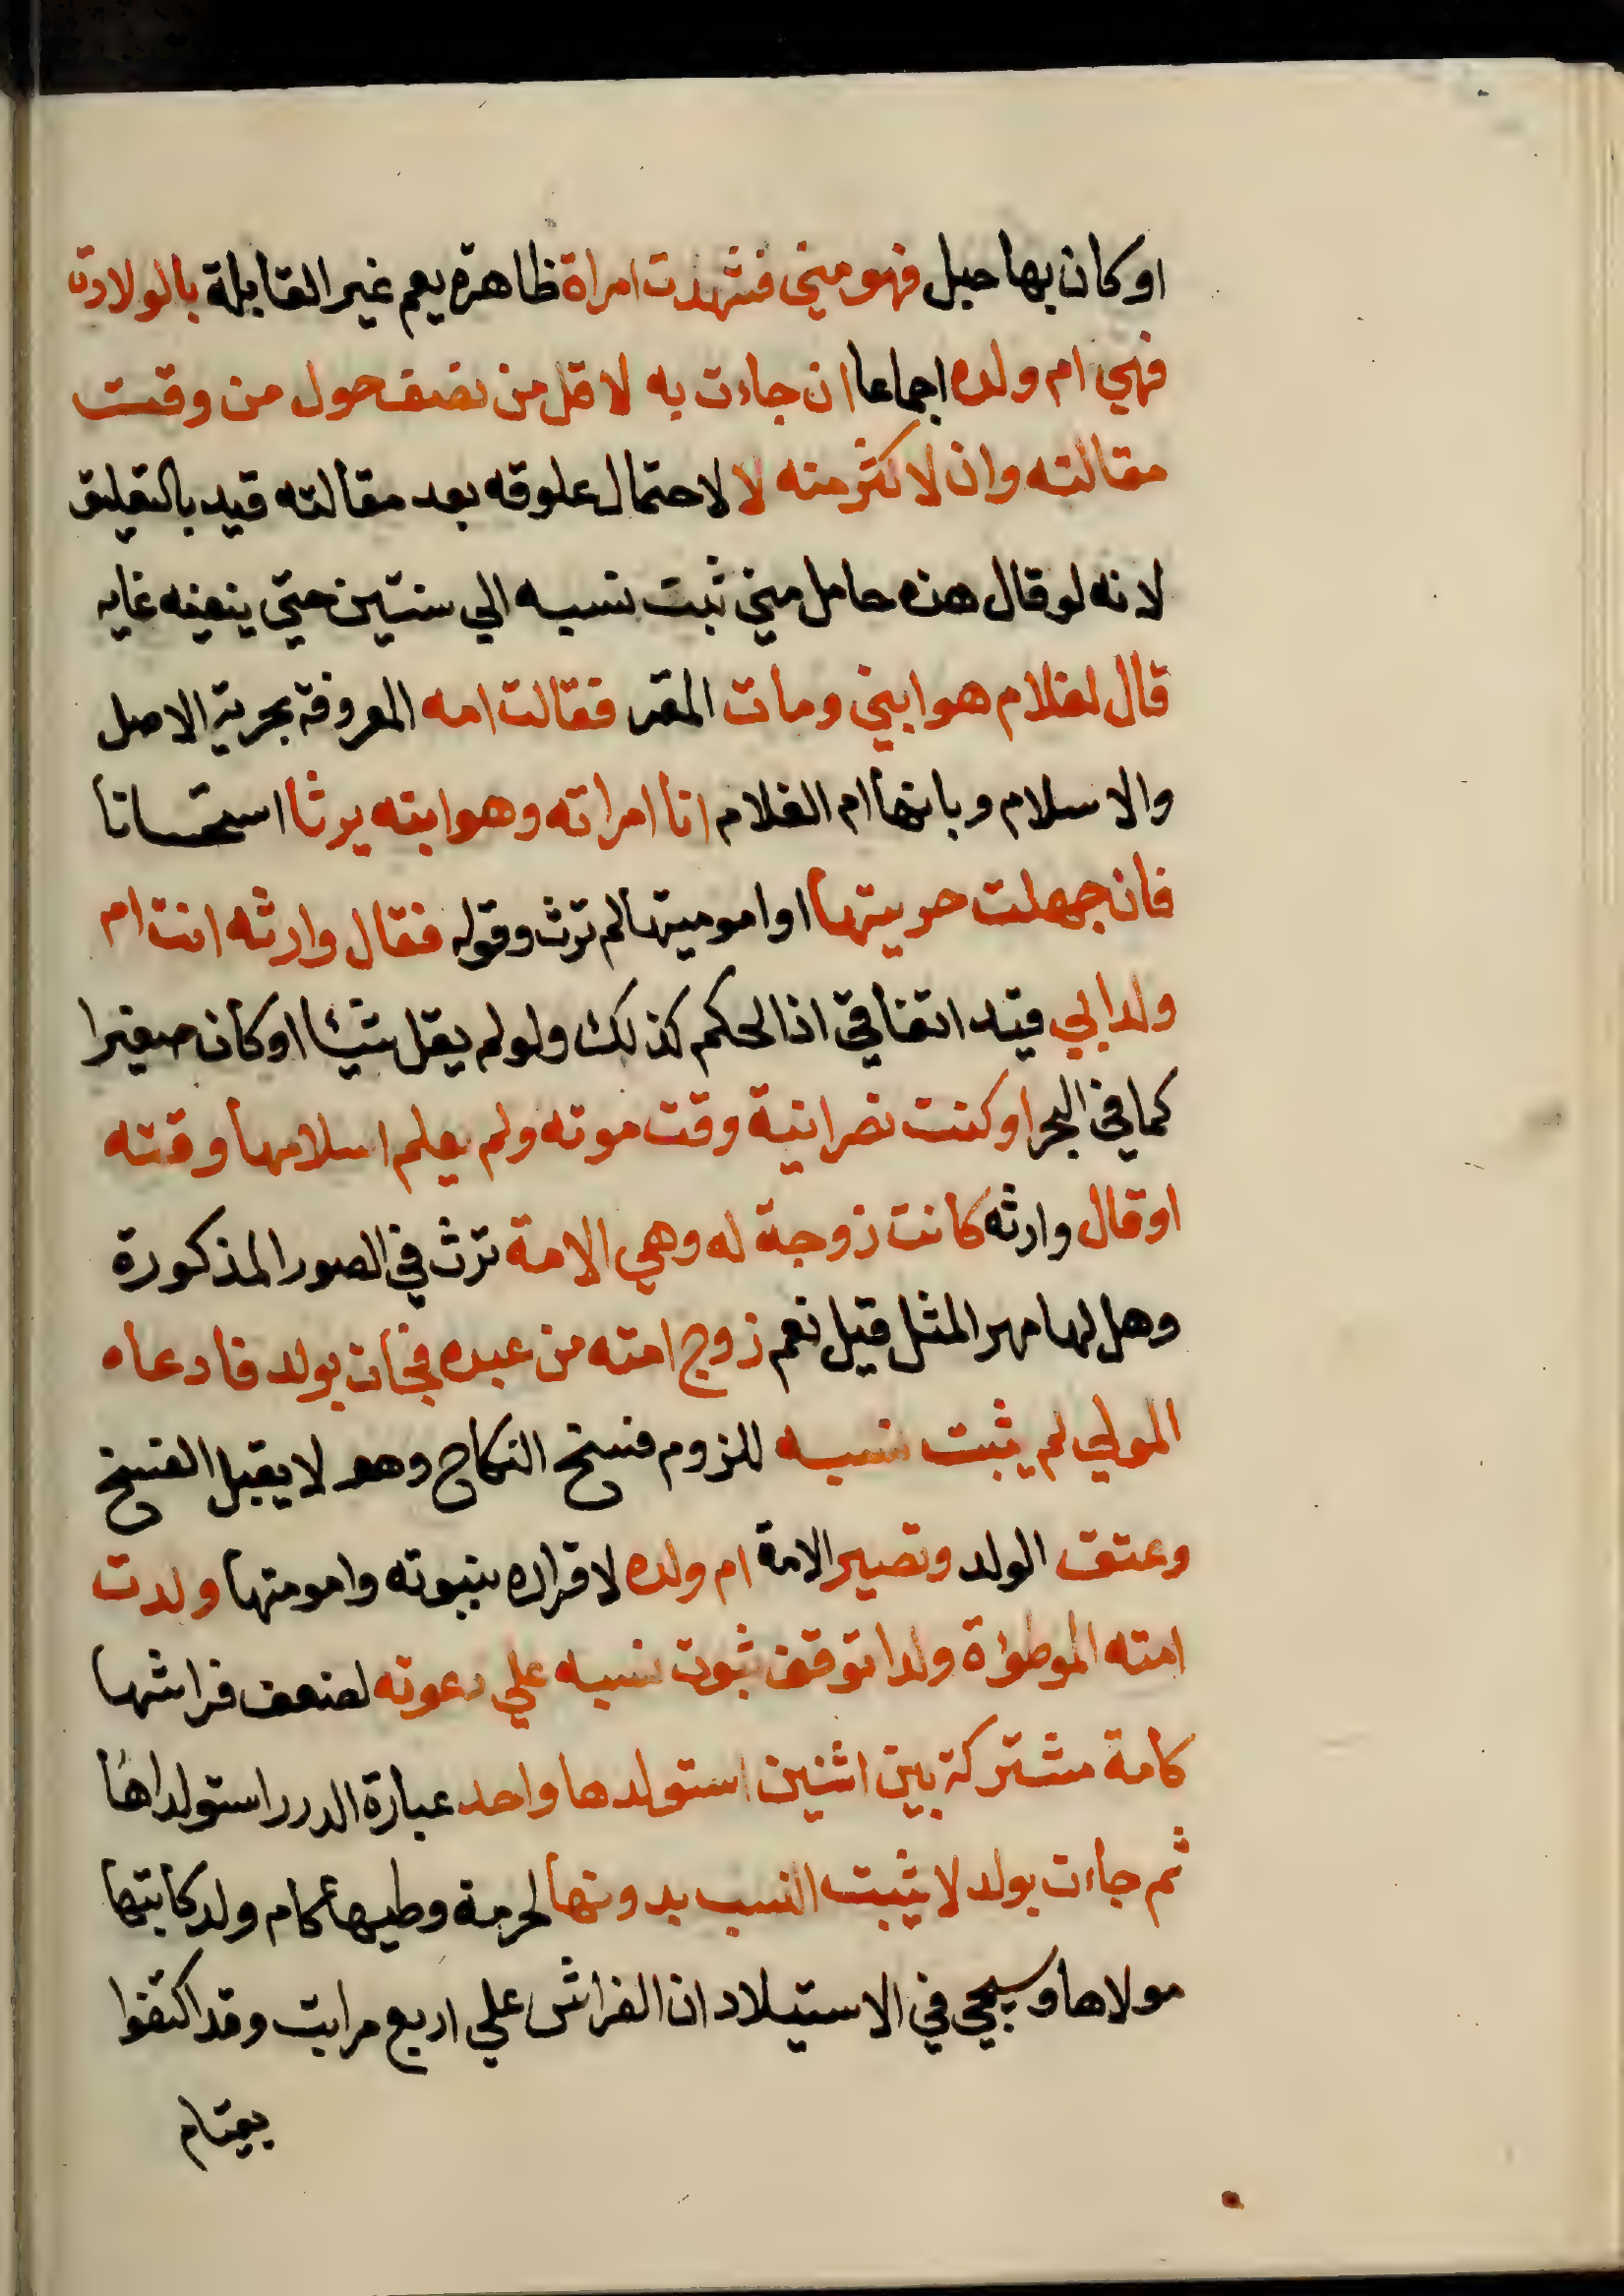 او كان بها حبل فهو مني فشهدت امراة ظاهره يعم غير القابلة بالولادة
فهي ام ولده اجماعا ان جاءت به لاقل من نصف حول من وقت
مقالته وان لاكثر منه لا لاحتمال علوقه بعد مقالته قيد بالتعليق
لانه لو قال هذه حامل مني ثبت نسبه الي سنتين حتي ينفيه غايه
قال لغلام هو ابني ومات المقر فقالت امه المعروفة بحرية الاصل
والاسلام وبانها ام الغلام انا امراته وهو ابنه يرثا استحسانا
فان جهلت حريتها او اموميتها لم ترث وقوله فقال وارثه انت ام
ولد ابي قيد اتفاقي اذ الحكم كذلك ولو لم يقل شيئا او كان صغيرا
كما في البحر او كنت نصرانية وقت موته ولم يعلم اسلامها وقته
او قال وارثه كانت زوجة له وهي الامة ترث في الصور المذكورة
وهل لها مهر المثل قيل نعم زوج امته من عبده فجات بولد فادعاه
المولي لم يثبت نسبه للزوم فسخ النكاح وهو لا يقبل الفسخ
وعتق الولد وتصير الامة ام ولده لاقراره ببنوته وامومتها ولدت
امته الموطؤة ولدا توقف ثبوت نسبه علي دعوته لضعف فراشها
كامة مشتركة بين اثنين استولدها واحد عبارة الدرر استولداها
ثم جاءت بولد لا يثبت النسب بدونها لحرمة وطيها كام ولد كاتبها
مولاها وسيجي في الاستيلاد ان الفراش علي اربع مراتب وقد اكتفوا
بقيام